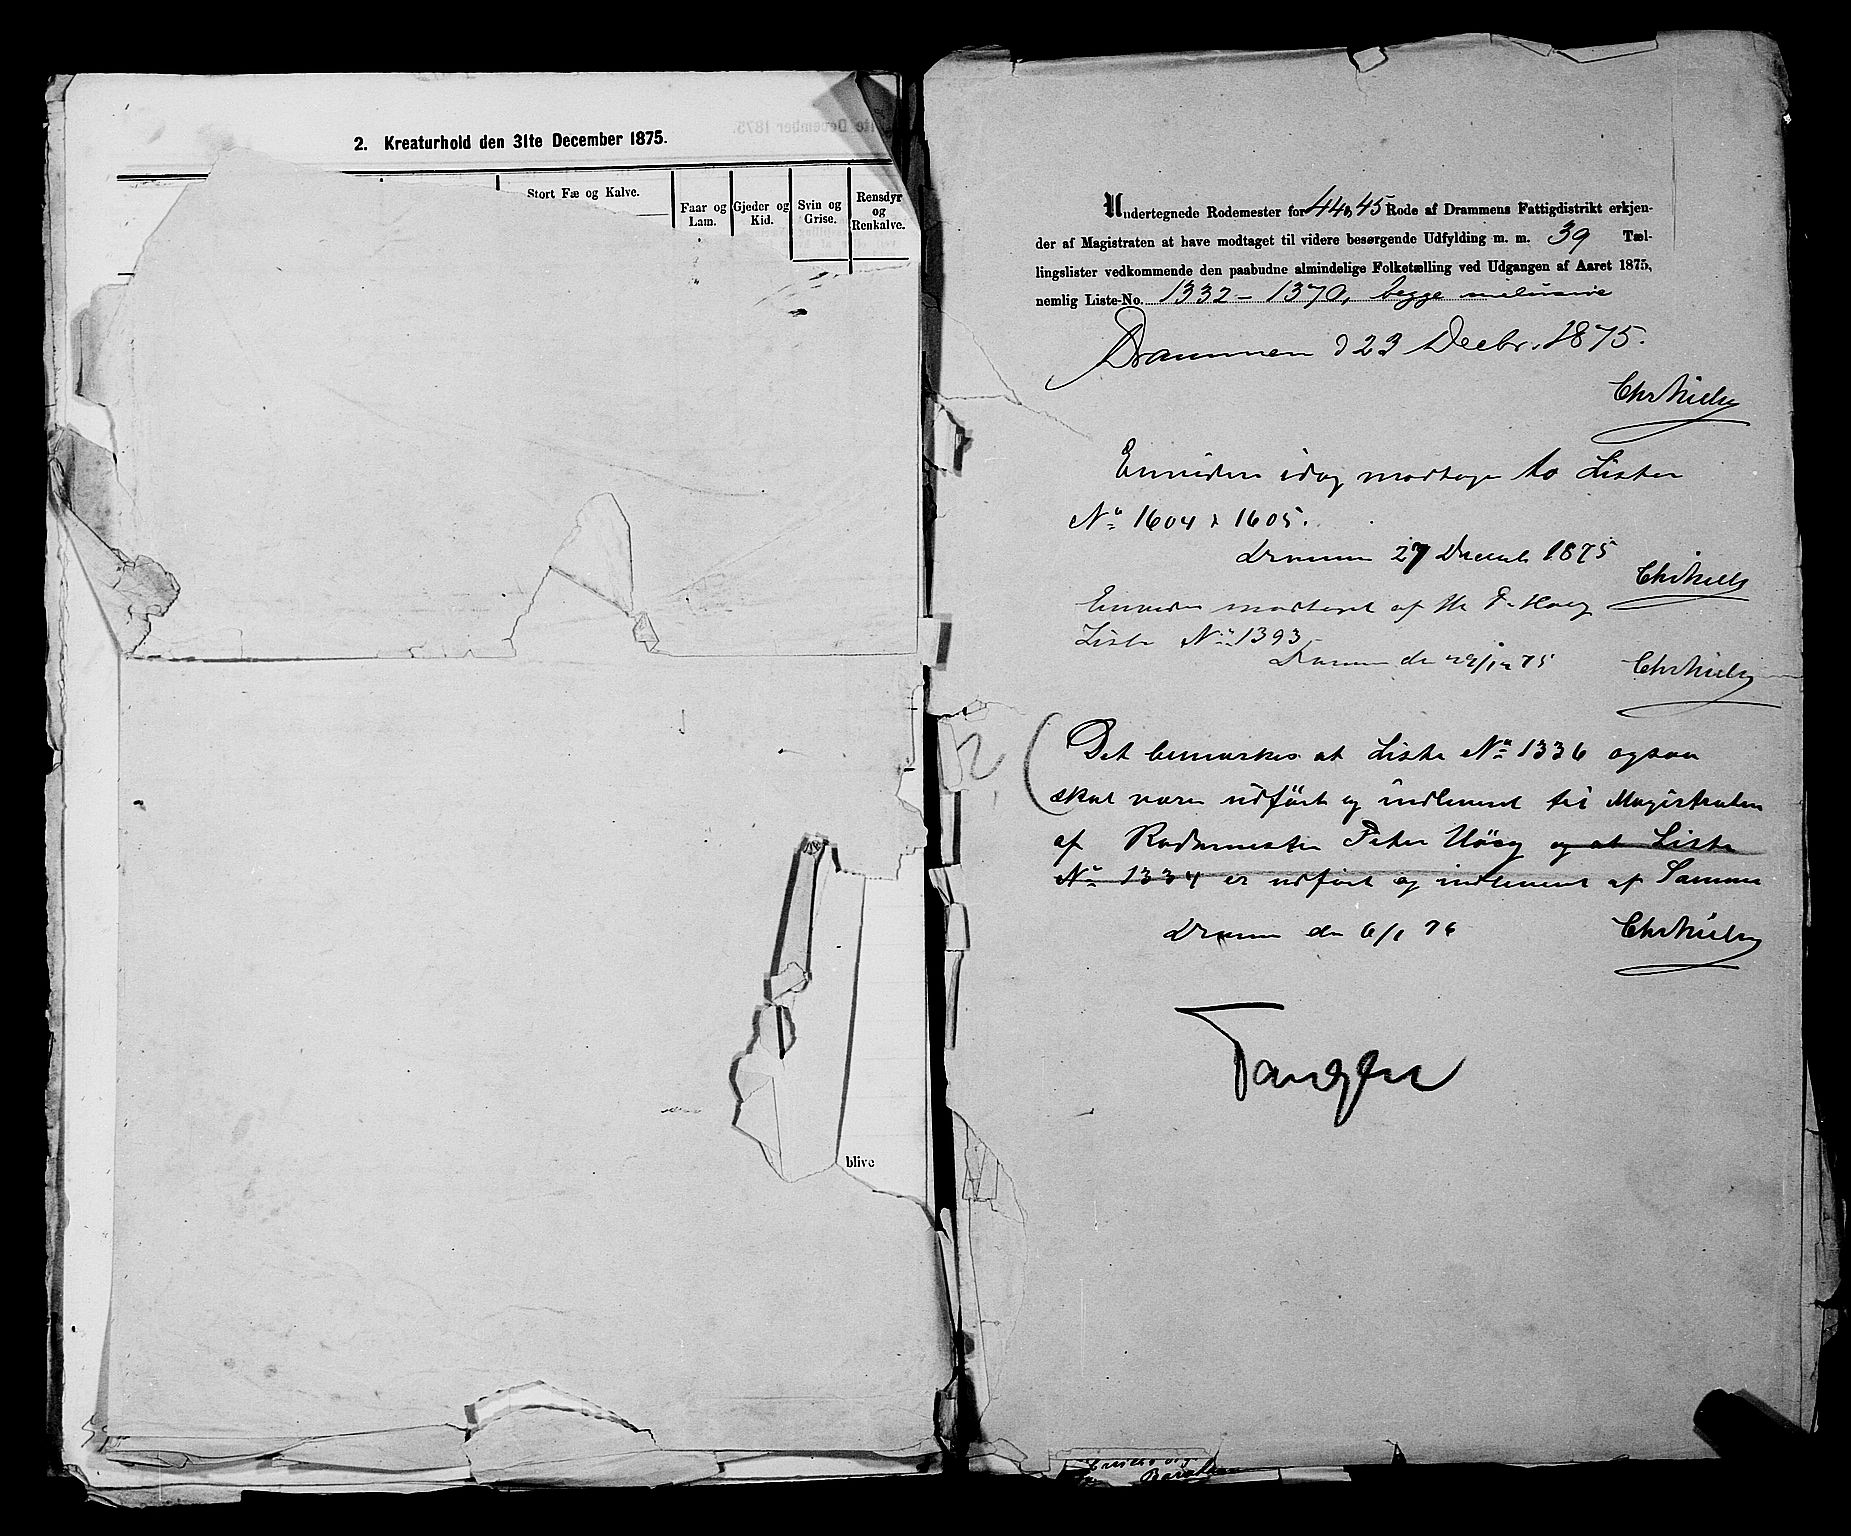 2. Kreaturhold den 31te December 1875.
Stort Fæ og Kalve.
Faar og Lam.
Gjeder og Kid.
Svin og Grise.
Rensdyr og Renkalve.
blive
Undertegnede Rodemester for 44, 45 Rode af Drammens Fattigdistrikt erkjen-
der af Magistraten at have modtaget til videre besørgende Udfylding m. m. 39 Tæl-
lingslister vedkommende den paabudne almindelige Folketælling ved Udgangen af Aaret 1875,
nemlig Liste-No. 1332 - 1370, begge inclusive
Drammen d 23 Decbr. 1875.
Chr Nielsen
Enviden idag modtaget to Lister
No 1604 & 1605.
Drammen 27 Decemb 1875
Chr Niels
Enviden modtaget af Hr P. Høeg
Liste No 1393
Drammen den 29/12 75
Chr Nielsen
Det bemærkes at Liste No 1336 ogsaa
skal være udført og indleveret til Magistraten
af Rodemester Peter Høeg og at Liste
No 1334 er udført og indleveret af Samme
Drammen den 6/1 76
Chr Nielsen
Tangen